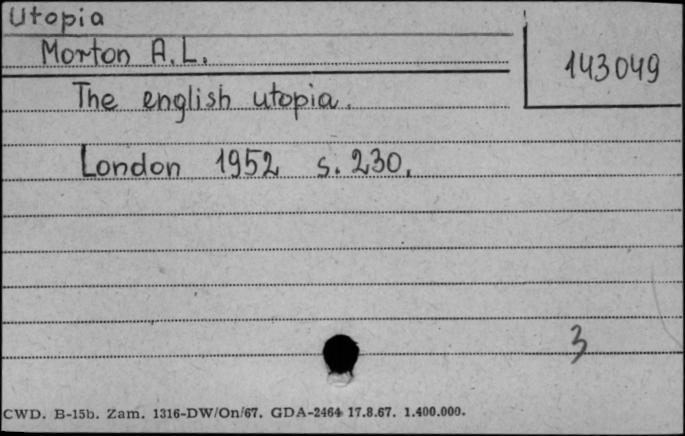 Utopia
Morton A.L.
143049
The english utopia.
London 1952 s. 230.
3
CWD. B-15b. Zam. 1316-DW/On/67. GDA-2464 17.8.67. 1.400.000.